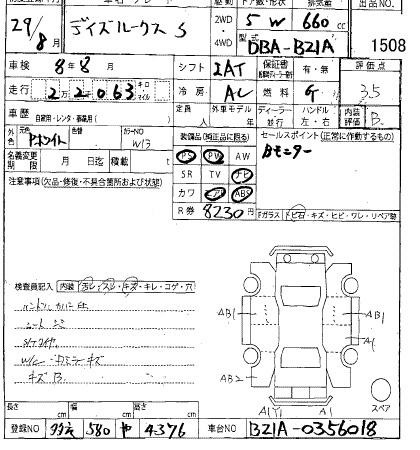 駆動
ドア数・形状
排気量
出品NO.
29/8月
デイズルークス S
2WD
・
4WD
5 W
660 cc
型式
DBA-B21A
1508
車検 8年8月
シフト IAT
保証書
有・無
評価点
走行 22063 キロ・マイル
冷房 AC
燃料 G
3.5
車歴
自家用・レンタ・事業用( )
定員 人
外車 年式 年
ディーラー・並行
ハンドル 左・右
内装評価 B
外色
元色 Pホワイト
色替
カラーNO W13
装備品(純正品に限る)
セールスポイント(正常に作動するもの)
Bモニター
名義変更期限 月 日迄
積載 t
PS PW AW
SR TV ナビ
カワ エアB ABS
R券 8230円
注意事項(欠品・修復・不具合箇所および状態)
Fガラス(トビ石・キズ・ヒビ・ワレ・リペア跡
検査員記入(内装 汚レ・スレ・キズ・キレ・コゲ・穴)
キズB.
AB1
AB1
A1
AB2
A1
A1
スペア
長さ cm
幅 cm
高さ cm
登録NO
580 や 4376
車台NO B21A-0356018